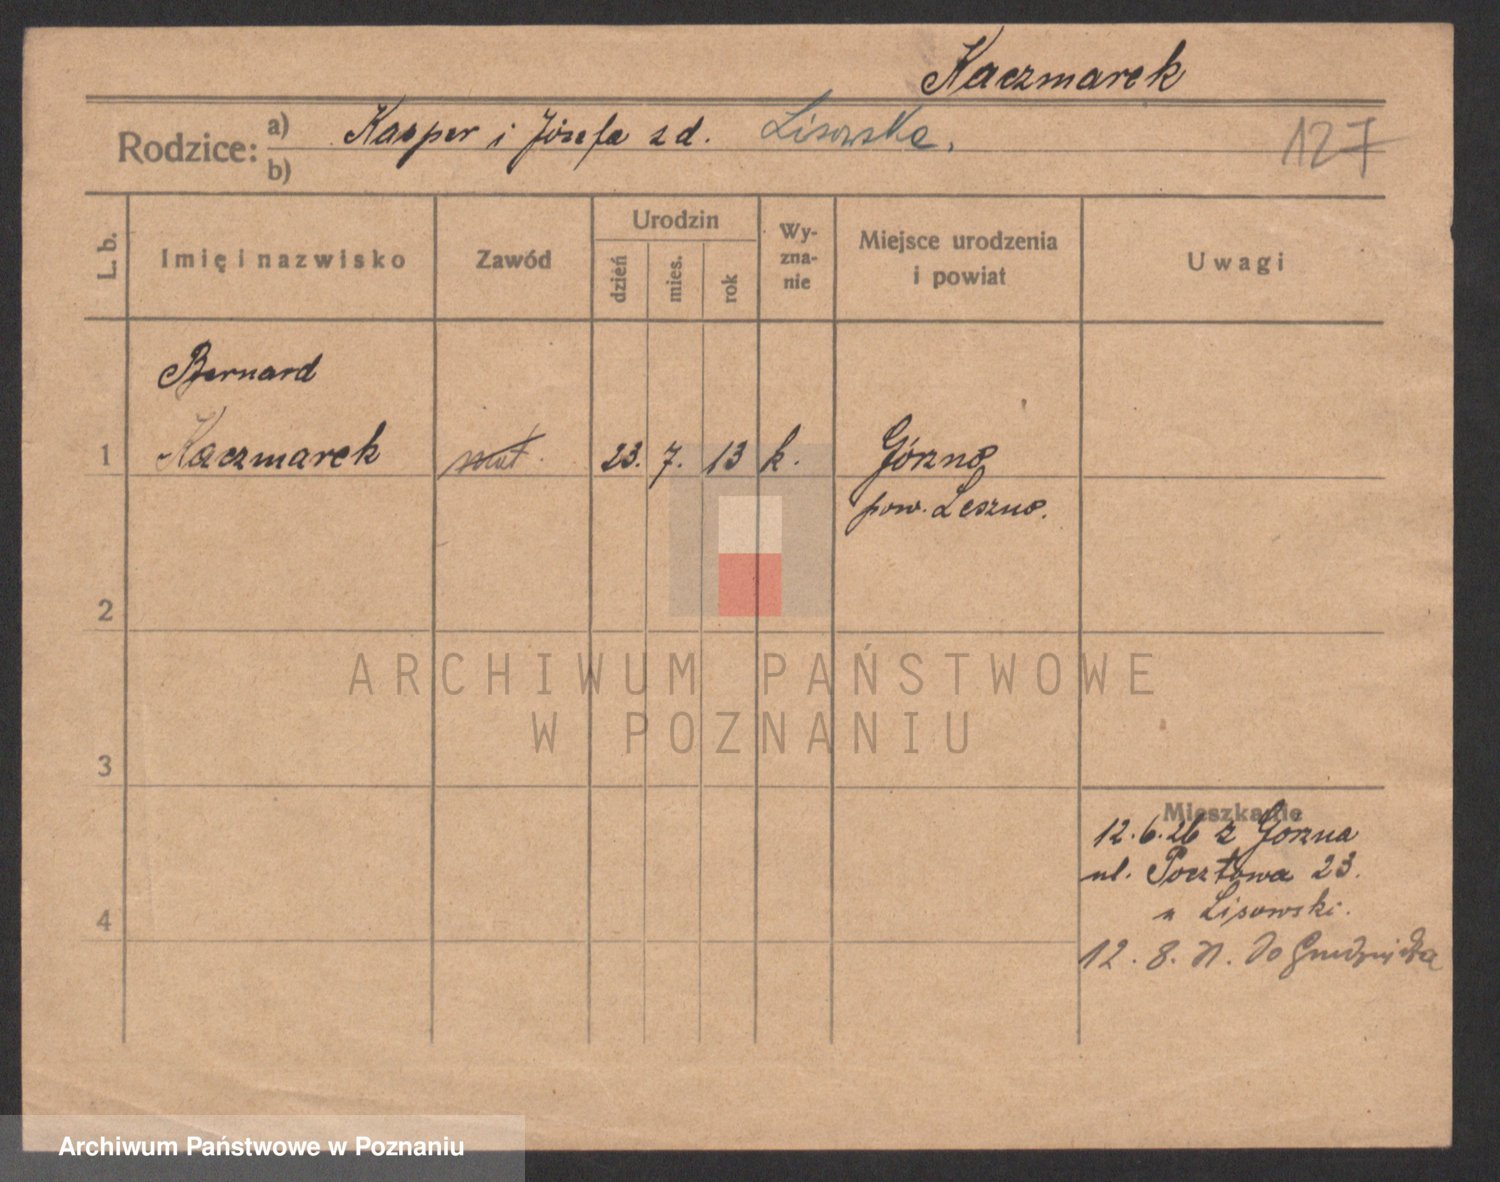 Kaczmarek
Rodzice: a) Kacper i Józefa z d. Lisowska, 127
b)
L. b. Imię i nazwisko Zawód Urodzin dzień mies. rok Wyznanie Miejsce urodzenia i powiat Uwagi
Bernard
1 Kaczmarek 23. 7. 13 k. Górzno
pow. Leszno.
2
ARCHIWUM PAŃSTWOWE
W POZNANIU
3
Mieszkanie
12.6.26 z Gorzna
ul. Pocztowa 23.
4 u Lisowski.
12. 8. do Grudziądza
Archiwum Państwowe w Poznaniu